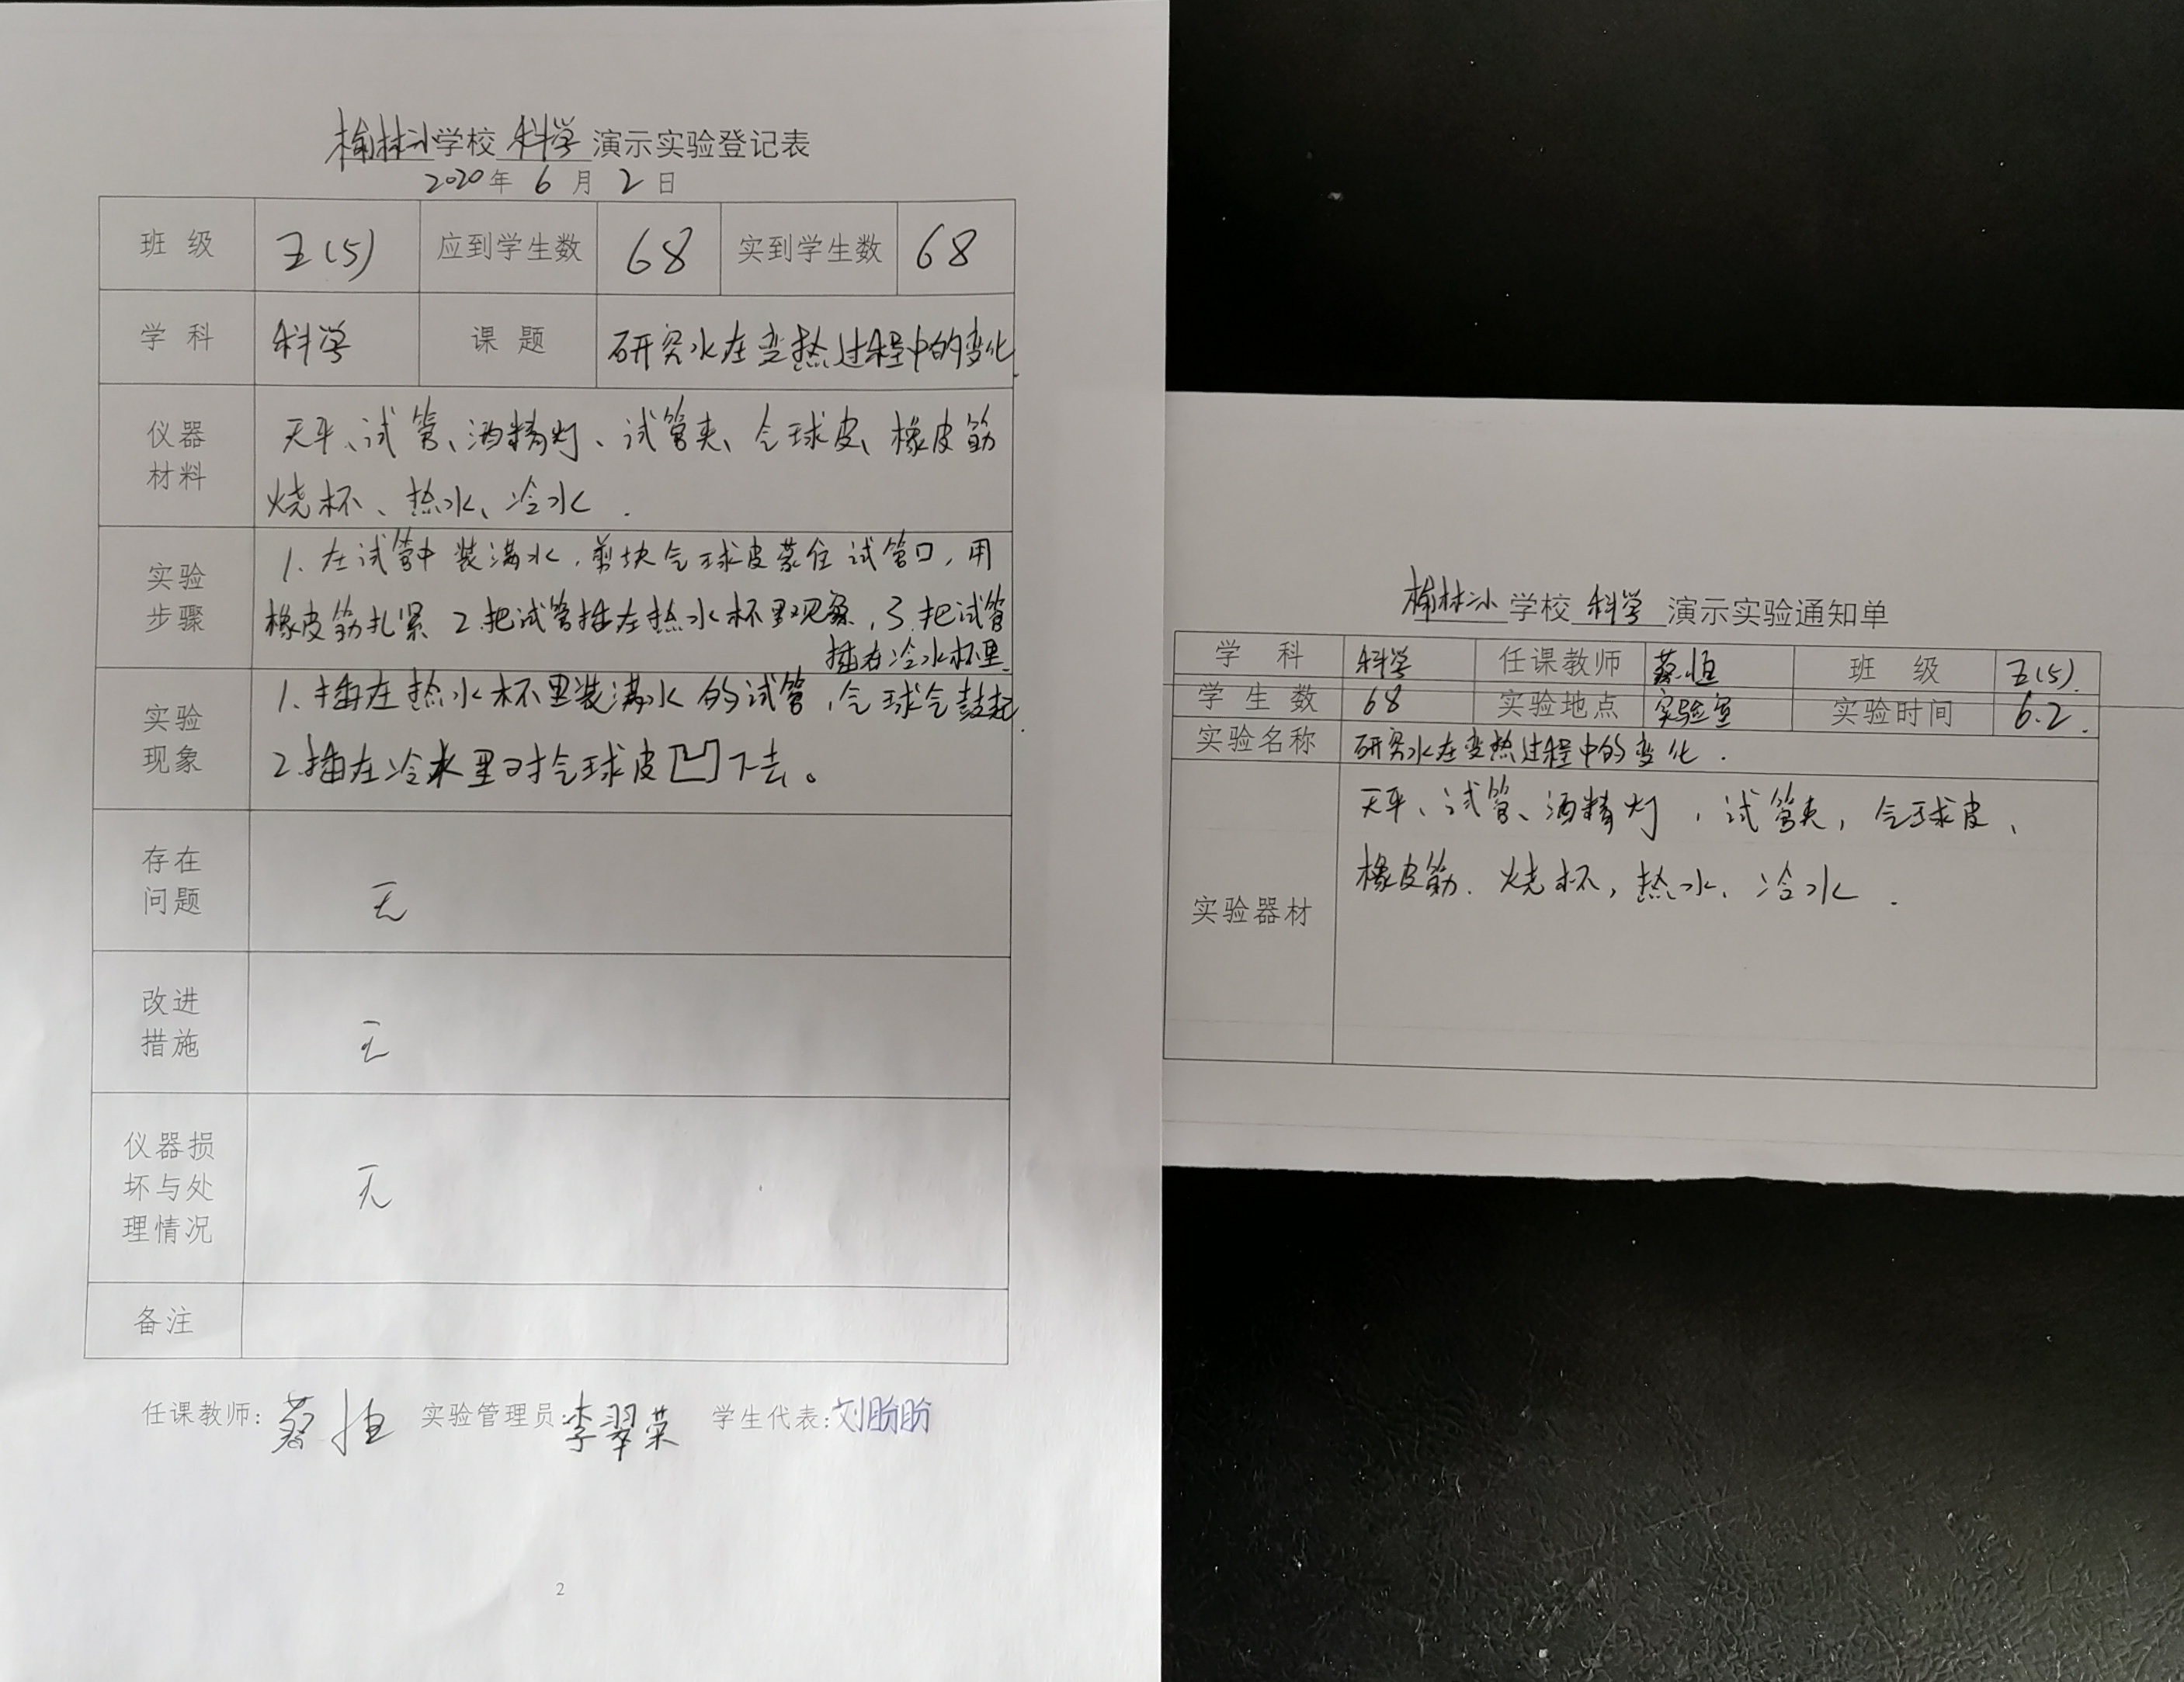 榆林小学校 科学 演示实验登记表
2020年 6 月 2 日
班 级 五(5) 应到学生数 68 实到学生数 68
学 科 科学 课 题 研究水在变热过程中的变化.
仪器
材料
天平、试管、酒精灯、试管夹、气球皮、橡皮筋
烧杯、热水、冷水.
实验
步骤
1.在试管中装满水,剪块气球皮蒙住试管口,用
橡皮筋扎紧 2.把试管插在热水杯里观象,3.把试管
插在冷水杯里.
实验
现象
1.插在热水杯里装满水的试管,气球气鼓起.
2.插在冷水里时气球皮凹下去。
存在
问题
无
改进
措施
无
仪器损
坏与处
理情况
无
备注
任课教师: 蔡恒 实验管理员:李翠荣 学生代表:刘盼盼
2
榆林小学校 科学 演示实验通知单
学 科 科学 任课教师 蔡恒 班 级 五(5).
学 生 数 68 实验地点 实验室 实验时间 6.2.
实验名称 研究水在变热过程中的变化.
实验器材
天平、试管、酒精灯,试管夹,气球皮、
橡皮筋.烧杯,热水、冷水.